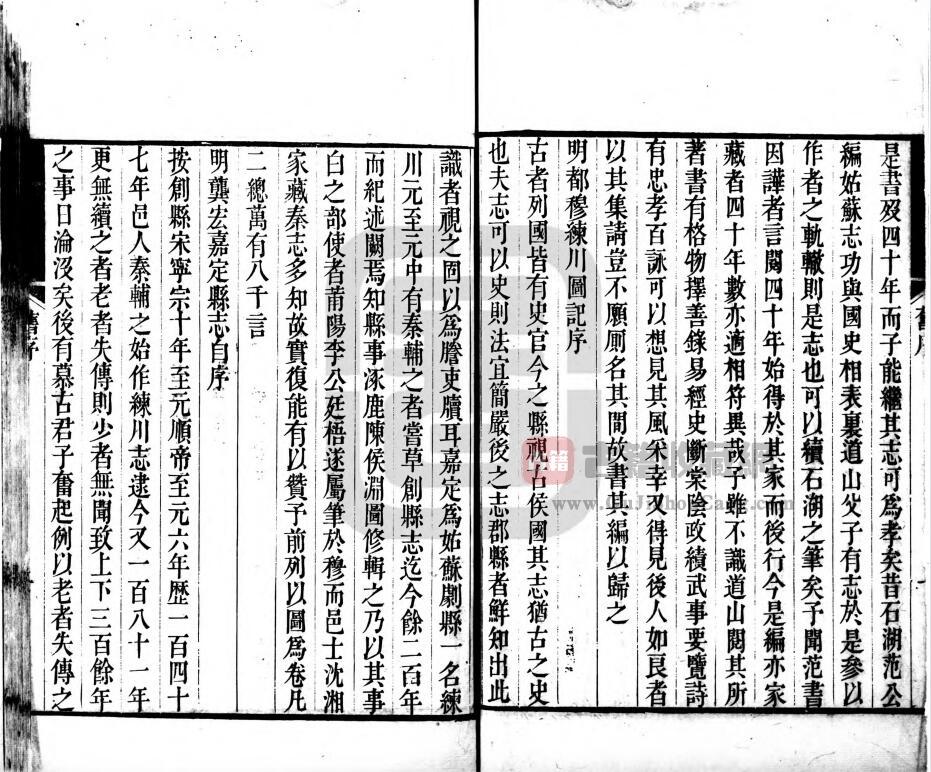 是書歿四十年而子能繼其志可爲孝矣昔石湖范公
編姑蘇志功與國史相表裏道山父子有志於是參以
作者之軌轍則是志也可以續石湖之筆矣予聞范書
因譁者言閱四十年始得於其家而後行今是編亦家
藏者四十年數亦適相符異哉予雖不識道山閱其所
著書有格物擇善錄易經史斷棠陰政績武事要覽詩
有忠孝百詠可以想見其風采幸又得見後人如良者
以其集請豈不願厠名其間故書其編以歸之
明都穆練川圖記序
古者列國皆有史官今之縣視古侯國其志猶古之史
也夫志可以史則法宜簡嚴後之志郡縣者鮮知出此
舊序
識者視之固以爲謄吏牘耳嘉定爲姑蘇劇縣一名練
川元至元中有秦輔之者嘗草創縣志迄今餘二百年
而紀述闕焉知縣事涿鹿陳侯淵圖修輯之乃以其事
白之部使者莆陽李公廷梧遂屬筆於穆而邑士沈湘
家藏秦志多知故實復能有以贊予前列以圖爲卷凡
二總萬有八千言
明龔宏嘉定縣志自序
按創縣宋寧宗十年至元順帝至元六年歷一百四十
七年邑人秦輔之始作練川志逮今又一百八十一年
更無續之者老者失傳則少者無聞致上下三百餘年
之事日淪沒矣後有慕古君子奮起例以老者失傳之
古籍收藏網
www.GuJiShouCang.com